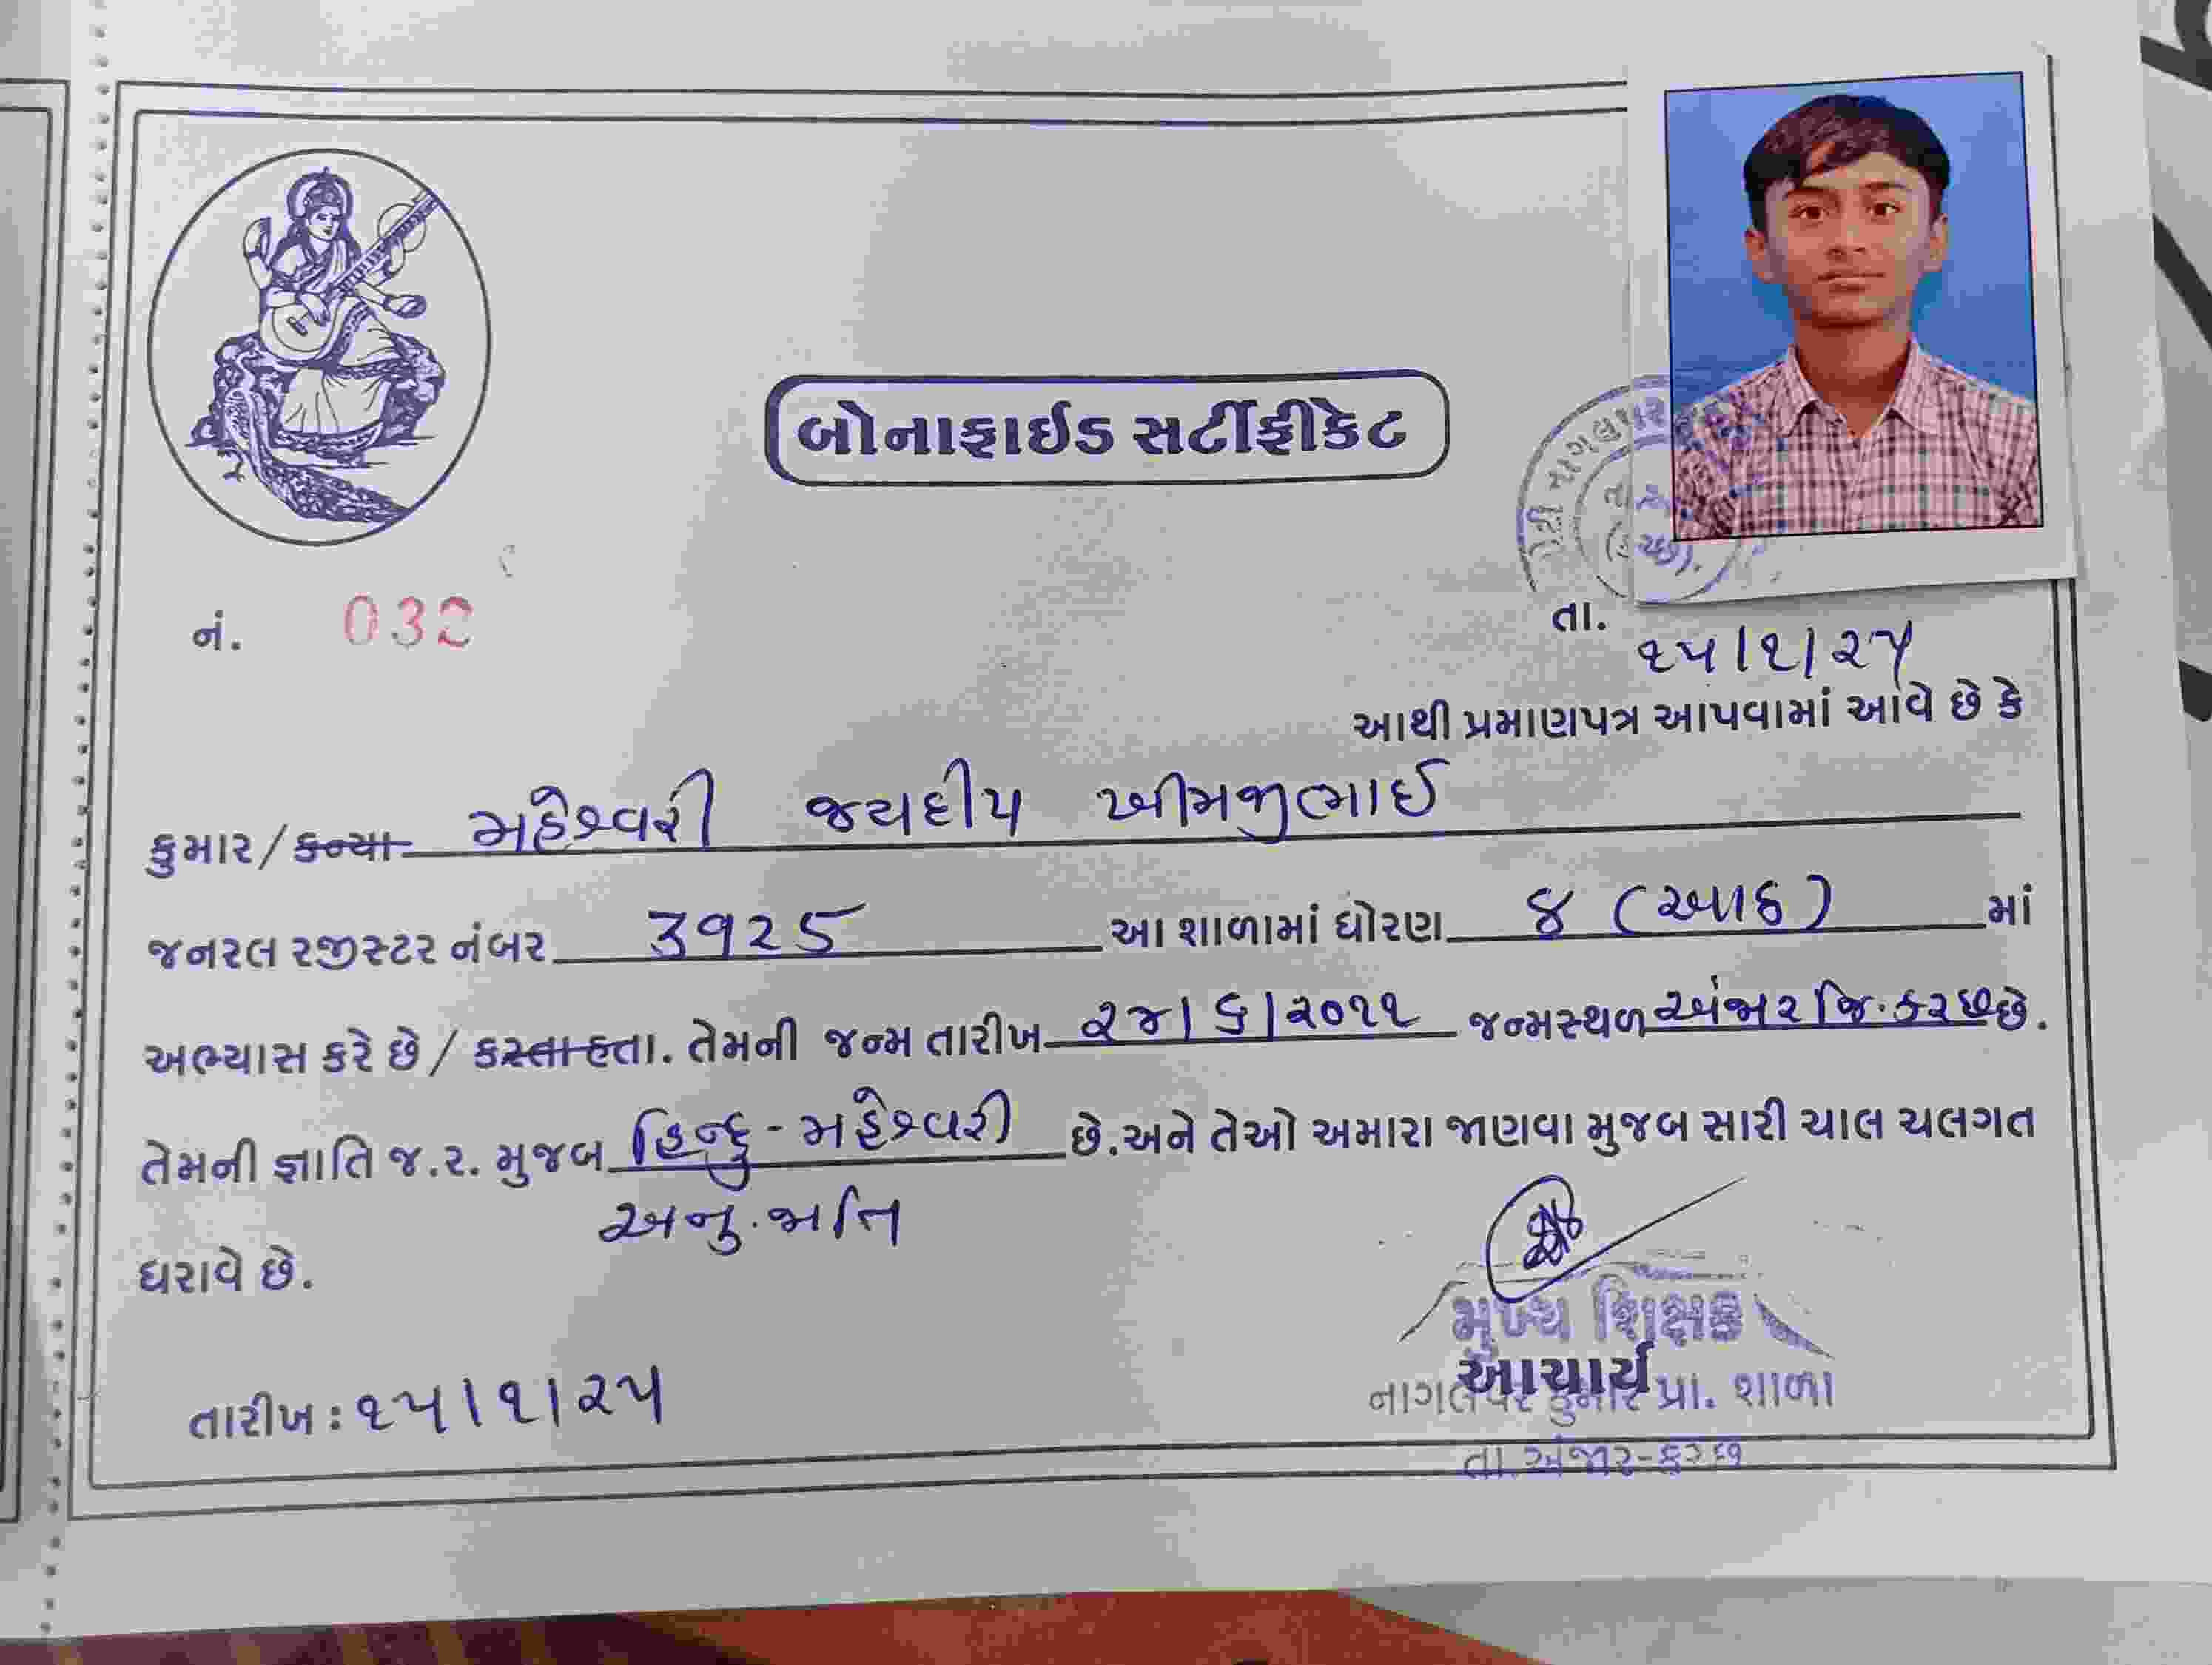 બોનાફાઇડ સર્ટીફીકેટ
નં. 032
તા. ૧૫/૧/૨૫
આથી પ્રમાણપત્ર આપવામાં આવે છે કે
કુમાર/કન્યા મહેશ્વરી જયદીપ ખીમજીભાઈ
જનરલ રજીસ્ટર નંબર 3૧૨૬ આ શાળામાં ધોરણ ૪ (આઠ) માં
અભ્યાસ કરે છે/ કરતા હતા. તેમની જન્મ તારીખ ૨૪/૬/૨૦૧૧ જન્મસ્થળ અંજાર જિ. કચ્છ છે.
તેમની જ્ઞાતિ જ.ર. મુજબ હિન્દુ - મહેશ્વરી છે. અને તેઓ અમારા જાણવા મુજબ સારી ચાલ ચલગત
અનુ. જાતિ
ધરાવે છે.
મુખ્ય શિક્ષક
આચાર્ય
નાગલપર કુમાર પ્રા. શાળા
તા. અંજાર-કચ્છ
તારીખ : ૧૫/૧/૨૫